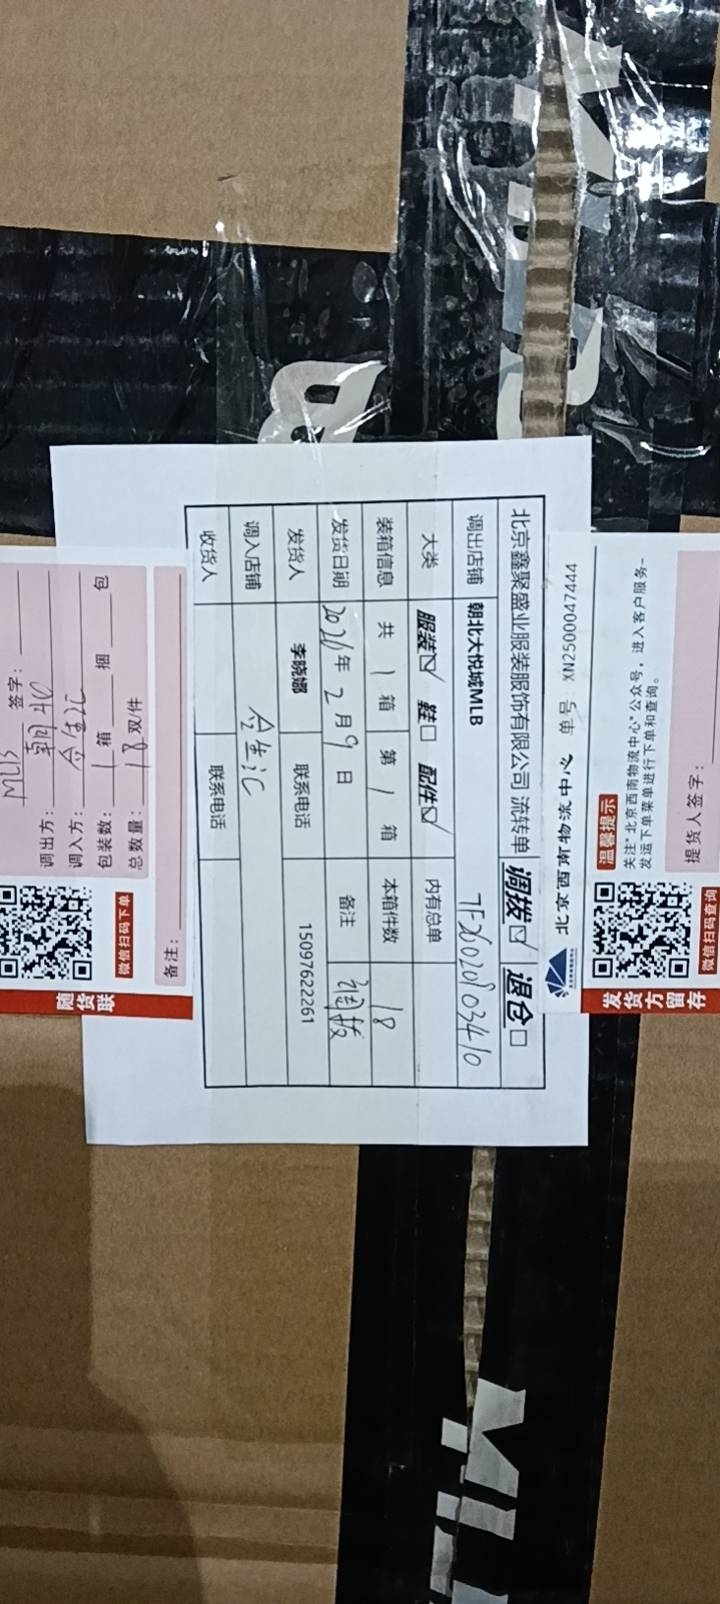 北京鑫聚盛业服装服饰有限公司 流转单 调拨☑ 退仓□
调出店铺 朝北大悦城MLB TF26020903410
大类 服装☑ 鞋□ 配件☑ 内有总单
装箱信息 共 1 箱 第 1 箱 本箱件数 18
发货日期 2026年 2月 9日 备注 调拨
发货人 李晓娜 联系电话 15097622261
调入店铺 合生汇
收货人 联系电话
北京西南物流中心 单号: XN2500047444
温馨提示
关注"北京西南物流中心"公众号,进入客户服务-
发运下单菜单进行下单和查询。
提货人签字:
微信扫码查询
发货方留存
MLB 签字:
调出方: 朝北
调入方: 合生汇
包装数: 1 箱 捆 包
总数量: 18 双/件
微信扫码下单
备注:
随货联